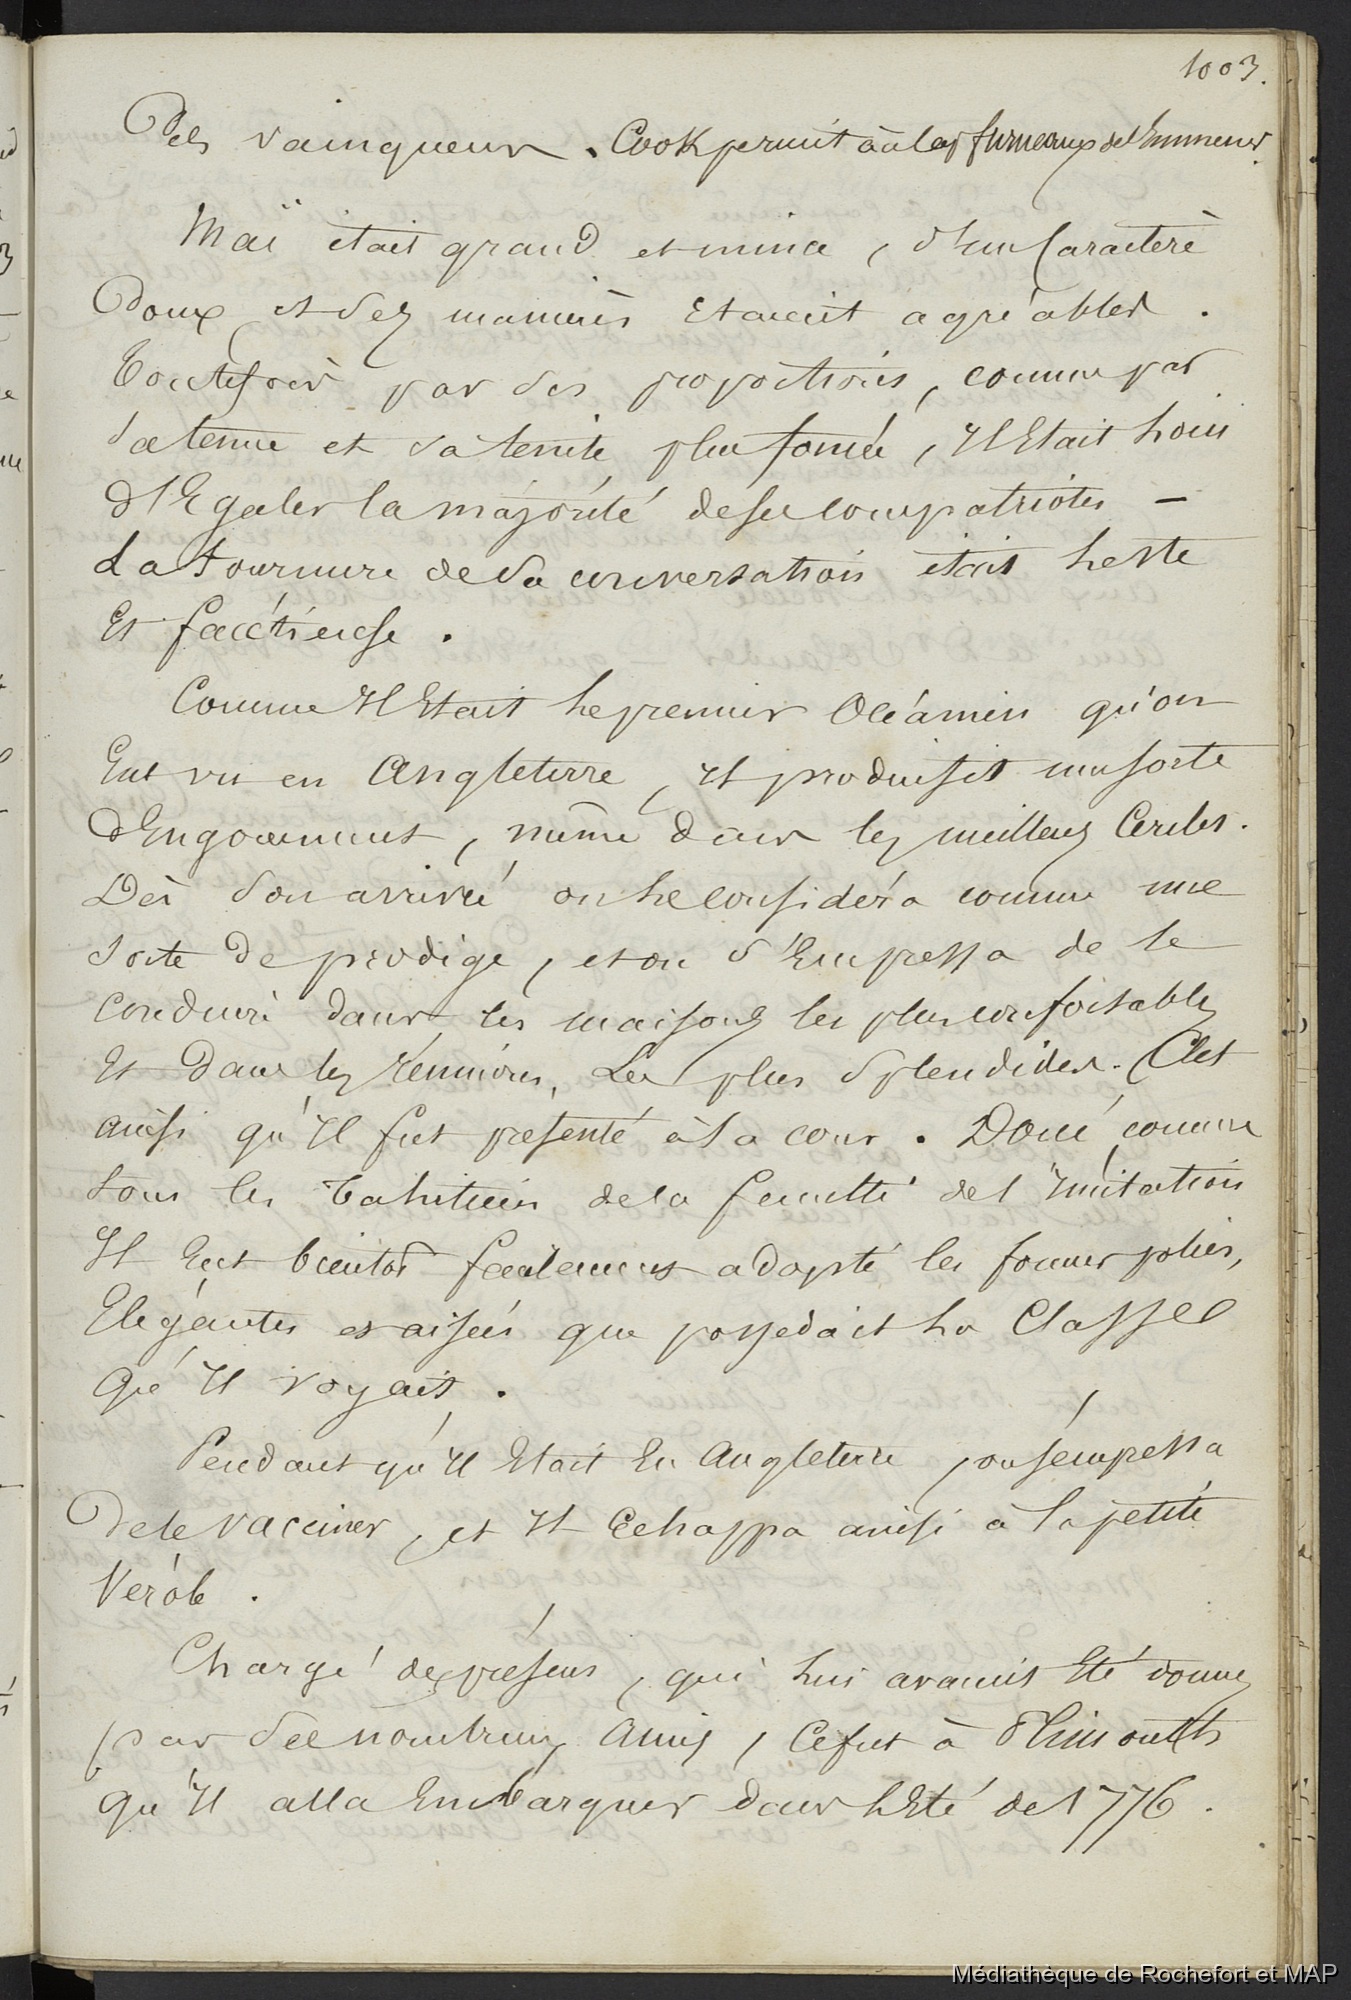 1003.
Des vainqueurs. Cook permit au Cap Furneaux de l'Emmener.
Maï était grand et mince, d'Un Caractère
Doux et Ses manières Etaient agréables.
Toutefois par Ses proportions, comme par
Sa tenue et Sa teinte plus foncée, Il Etait loin
d'Egaler la majorité de Ses compatriotes –
La tournure de Sa conversation était leste
Et facétieuse.
Comme Il Etait le premier Océanien qu'on
Eut vu en Angleterre, Il produisit une sorte
d'Engouement, même dans les meilleurs Cercles.
Dès Son arrivée on le considéra comme une
Sorte de prodige, et on S'Empressa de le
Conduire dans les maisons les plus confortables
Et Dans les réunions, Les plus Splendides. C'est
ainsi qu'Il fut présenté à la cour. Doué comme
tous les Tahitiens de la faculté de l'Imitation
Il Eut bientôt facilement adopté les formes polies,
Elégantes et aisées que possédait la Classe
Qu'Il voyait.
Pendant qu'Il Etait En Angleterre, on s'empressa
De le vacciner, et Il Echappa ainsi à la petite
Vérole.
Chargé de présens, qui lui avaient Eté donnés
par Ses nombreux Amis, Ce fut à Plimouth
qu'Il alla Embarquer dans l'Eté de 1776.
Médiathèque de Rochefort et MAP